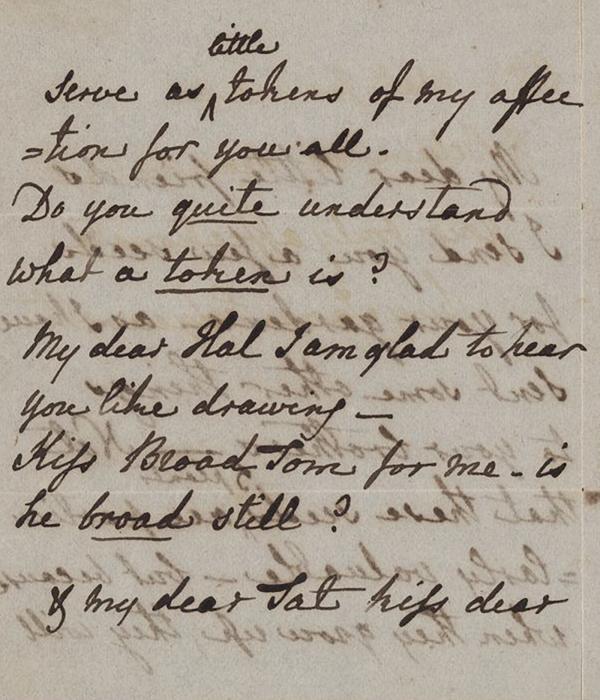 little
serve as ^ tokens of my affec
=tion for you all.
Do you quite understand
what a token is?
My dear Hal I am glad to hear
you like drawing —
Kiſs Broad Tom for me - is
he broad still?
& my dear Sat kiſs dear